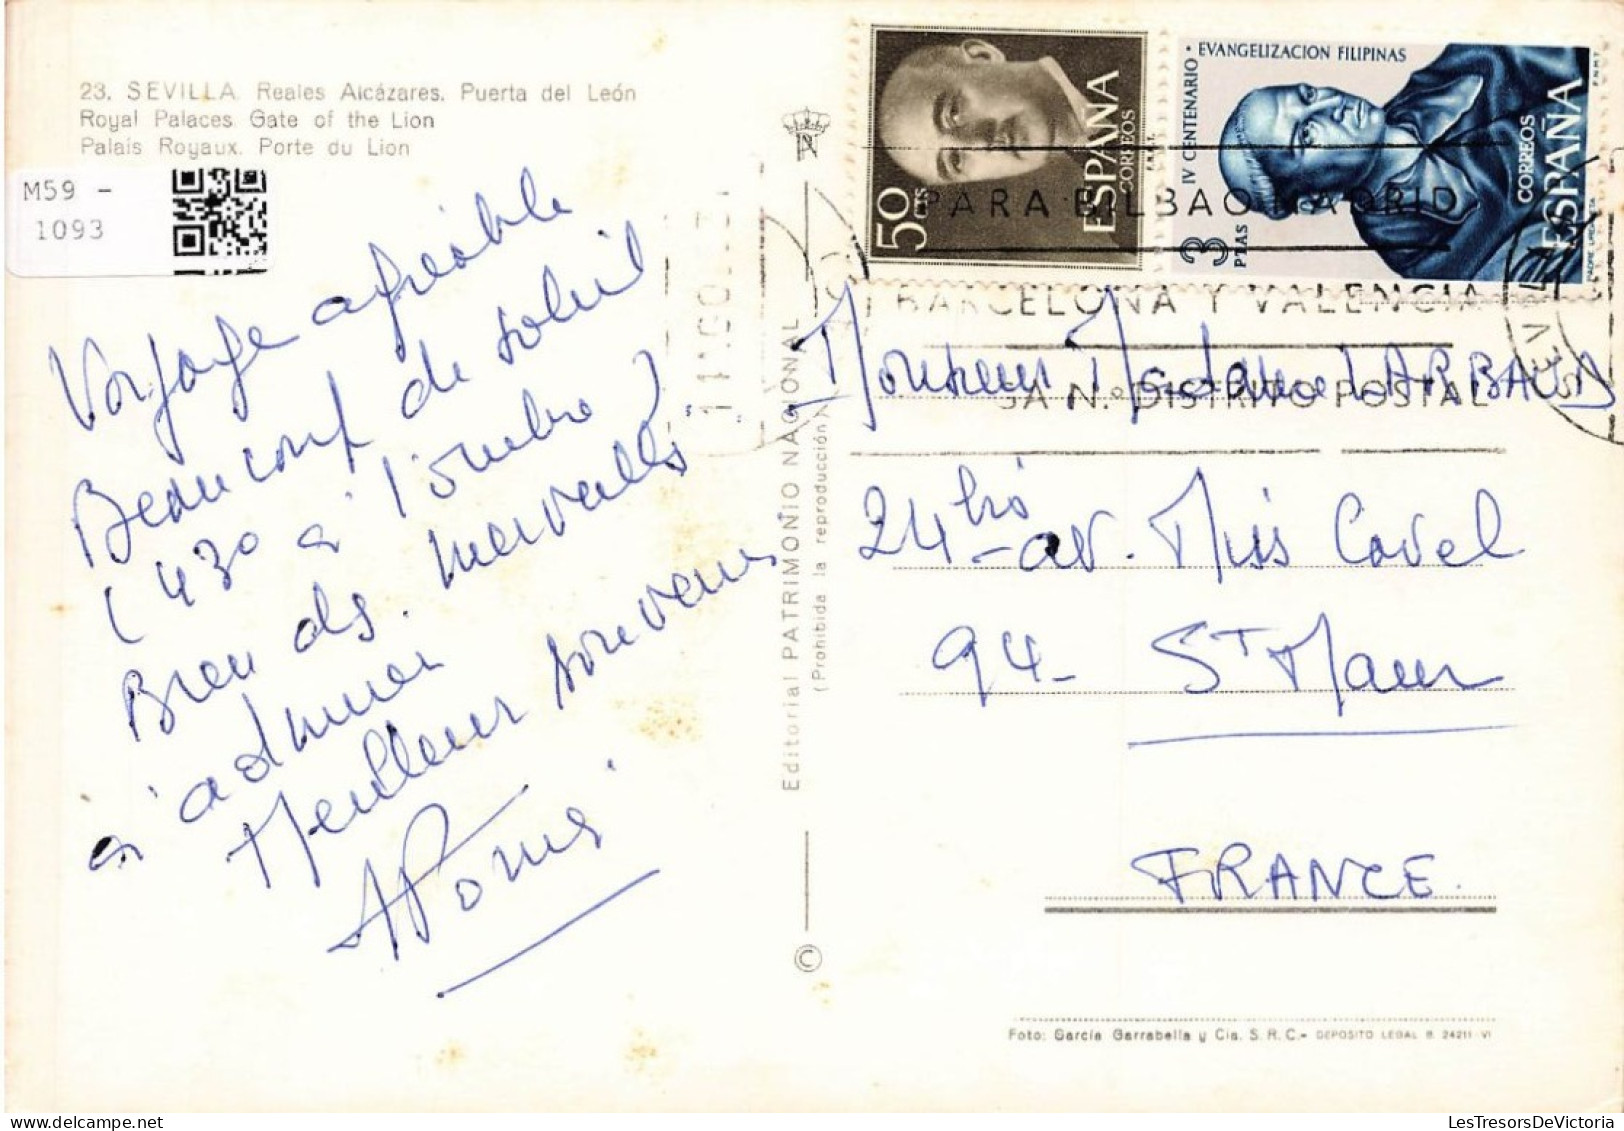 23. SEVILLA. Reales Alcázares. Puerta del León
Royal Palaces. Gate of the Lion
Palais Royaux. Porte du Lion
M59 -
1093
Voyage agréable
Beaucoup de soleil
(43° à l'ombre)
Bien ds. merveilles
à admirer
Meilleurs souvenirs
Editorial PATRIMONIO NACIONAL
(Prohibida la reproducción)
50 CTS
ESPAÑA
CORREOS
F.N.M.T.
IV CENTENARIO · EVANGELIZACION FILIPINAS
3 PTAS
CORREOS
ESPAÑA
PADRE URDANETA
F.N.M.T.
PARA BILBAO MADRID
BARCELONA Y VALENCIA
N.º DISTRITO POSTAL
Monsieur Madame LARBAUD
24 bis - av. Miss Cavel
94 - St Maur
FRANCE.
©
Foto: García Garrabella y Cía. S. R. C.- DEPOSITO LEGAL B. 24211-VI
LesTresorsDeVictoria